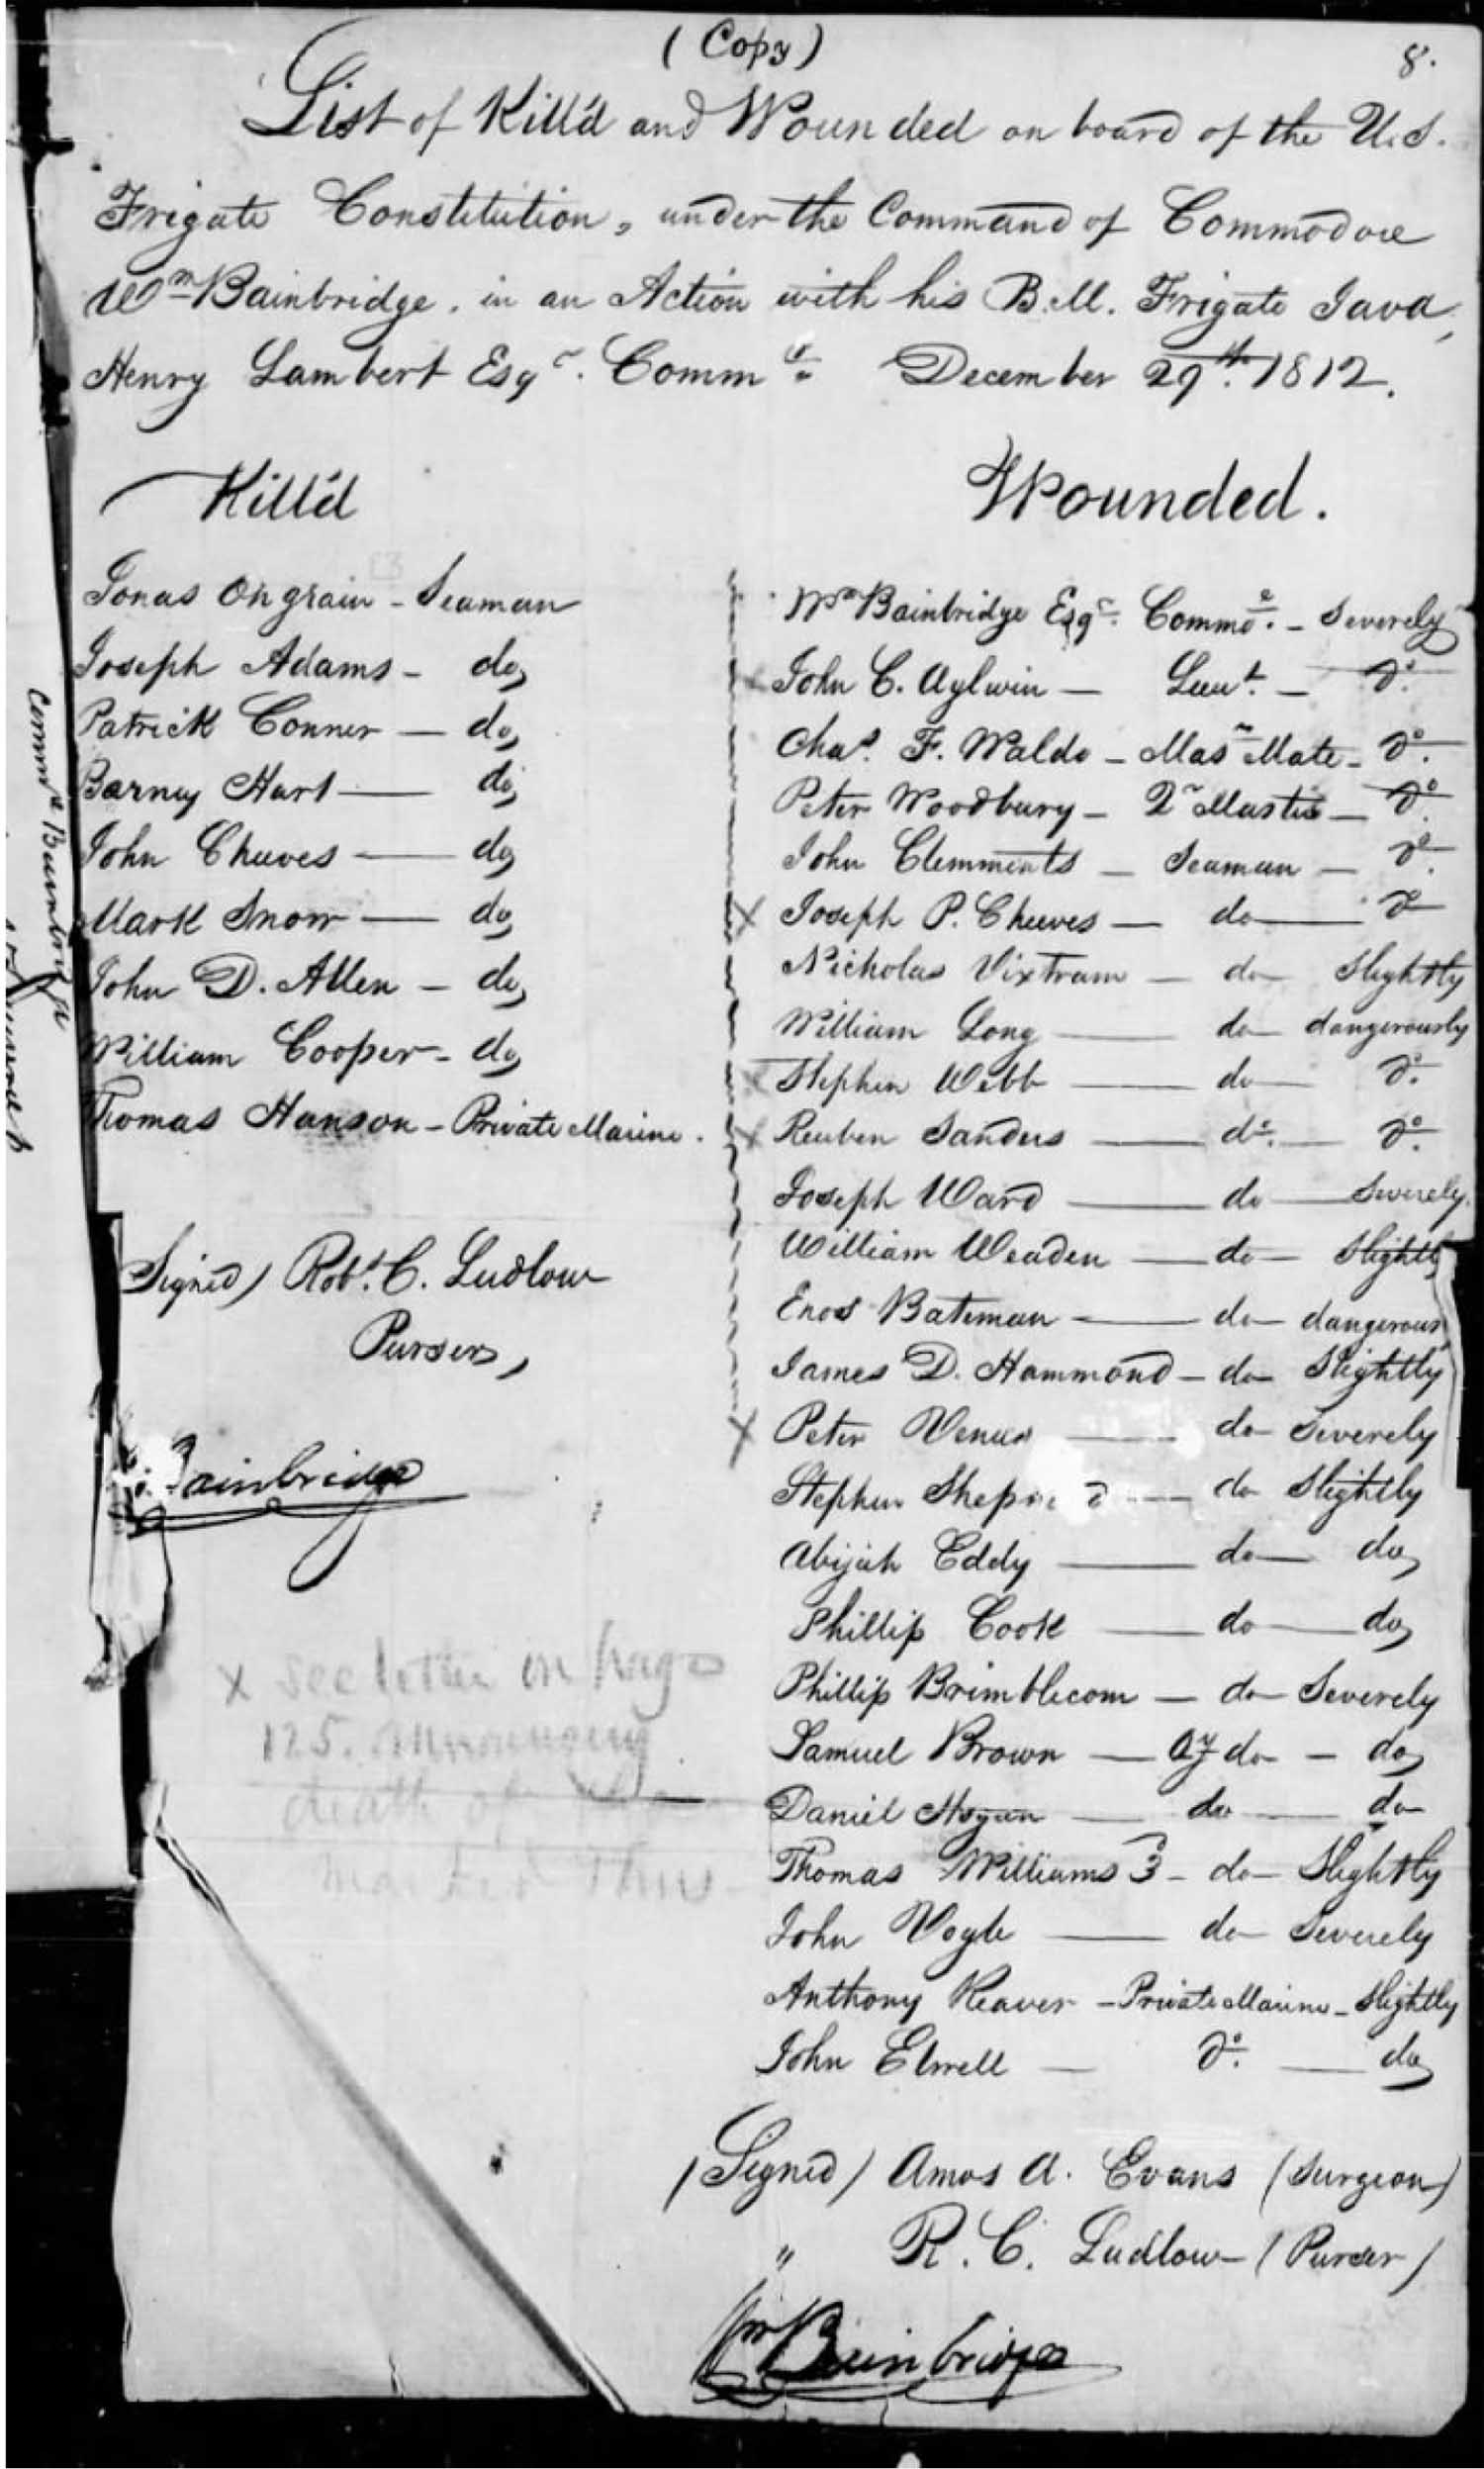 (Copy)
8.
List of Kill'd and Wounded on board of the U.S.
Frigate Constitution, under the Command of Commodore
Wm Bainbridge, in an Action with his B.M. Frigate Java,
Henry Lambert Esqr. Commr. December 29th. 1812.
Kill'd
Jonas Ongrain - Seaman
Joseph Adams - do
Patrick Conner - do
Barney Hart - do
John Cheeves - do
Mark Snow - do
John D. Allen - do
William Cooper - do
Thomas Hanson - Private Marine.
Signed) Robt. C. Ludlow
Purser,
Bainbridge
x see letter on page
125. announcing
death of
marked thus
Wounded.
Wm Bainbridge Esqr. Commo. - Severely
John C. Aylwin - Lieut. - Do.
Chas. F. Waldo - Masr Mate - Do.
Peter Woodbury - Qr Master - Do.
John Clemments - Seaman - Do.
x Joseph P. Cheeves - do - Do
Nicholas Vixtram - do - Slightly
William Long - do - dangerously
x Stephen Webb - do - Do.
x Reuben Sanders - do. - Do.
Joseph Ward - do - Severely.
William Weaden - do - Slightly
Enos Bateman - do - dangerous
James D. Hammond - do - Slightly
x Peter Venus - do - Severely
Stephen do - Slightly
Abijah Eddy - do - do
Phillip Cook - do - do
Phillip Brimblecom - do - Severely
Samuel Brown - Oy do - do
Daniel Hogan - do - do
Thomas Williams 3 - do - Slightly
John Vogle - do - Severely
Anthony Reaver - Private Marine - Slightly
John Elwell - Do. - do
(Signed) Amos A. Evans (Surgeon)
" R. C. Ludlow - (Purser)
Wm Bainbridge
Commre Bainbridge